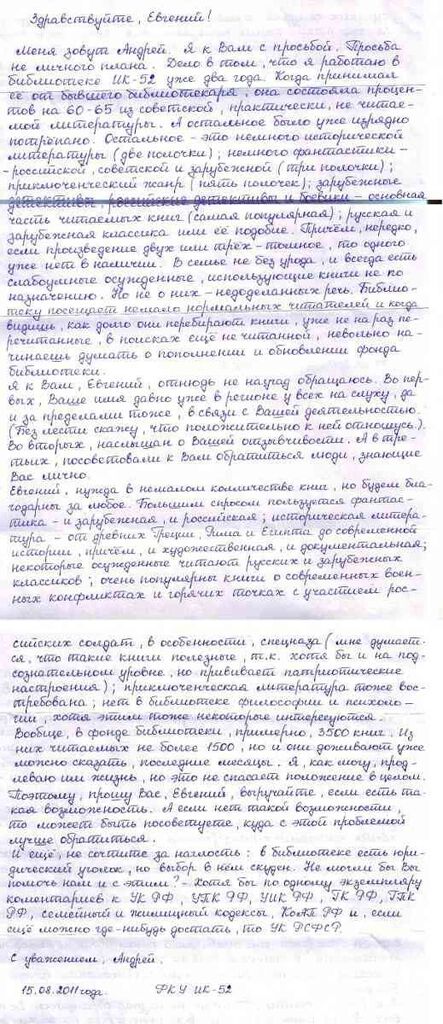 Здравствуйте, Евгений!
Меня зовут Андрей. Я к Вам с просьбой. Просьба
не личного плана. Дело в том, что я работаю в
библиотеке ИК-52 уже два года. Когда принимал
её от бывшего библиотекаря, она состояла процен-
тов на 60-65 из советской, практически, не читае-
мой литературы. А остальное было уже изрядно
потрепано. Остальное - это немного исторической
литературы (две полочки); немного фантастики -
- российской, советской и зарубежной (три полочки);
приключенческий жанр (пять полочек); зарубежные
детективы, российские детективы и боевики - основная
часть читаемых книг (самая популярная); русская и
зарубежная классика или её подобие. Причём, нередко,
если произведение двух или трёх-томное, то одного
уже нет в наличии. В семье не без урода, и всегда есть
слабоумные осужденные, использующие книги не по
назначению. Но не о них - недоделанных речь. Библио-
теку посещает немало нормальных читателей и когда
видишь, как долго они перебирают книги, уже не на раз пе-
речитанные, в поисках ещё не читанной, невольно на-
чинаешь думать о пополнении и обновлении фонда
библиотеки.
Я к Вам, Евгений, отнюдь не наугад обращаюсь. Во пер-
вых, Ваше имя давно уже в регионе у всех на слуху, да
и за пределами тоже, в связи с Вашей деятельностью.
(Без лести скажу, что положительно к ней отношусь.)
Во вторых, наслышан о Вашей отзывчивости. А в тре-
тьих, посоветовали к Вам обратиться люди, знающие
Вас лично.
Евгений, нужда в немалом количестве книг, но будем бла-
годарны за любое. Большим спросом пользуется фантас-
тика - и зарубежная, и российская; историческая литера-
тура - от древних Греции, Рима и Египта до современной
истории, причём, и художественная, и документальная;
некоторые осужденные читают русских и зарубежных
классиков; очень популярны книги о современных воен-
ных конфликтах и горячих точках с участием рос-
сийских солдат, в особенности, спецназа (мне думает-
ся, что такие книги полезные, т.к. хотя бы и на под-
сознательном уровне, но прививает патриотические
настроения); приключенческая литература тоже вос-
требована; нет в библиотеке философии и психоло-
гии, хотя этим тоже некоторые интересуются.
Вообще, в фонде библиотеки, примерно, 3500 книг. Из
них читаемых не более 1500, но и они доживают уже
можно сказать, последние месяцы. Я, как могу, прод-
леваю им жизнь, но это не спасает положение в целом.
Поэтому, прошу Вас, Евгений, выручайте, если есть та-
кая возможность. А если нет такой возможности,
то может быть посоветуете, куда с этой проблемой
лучше обратиться.
И ещё, не сочтите за наглость: в библиотеке есть юри-
дический уголок, но выбор в нём скуден. Не могли бы Вы
помочь нам и с этим? - Хотя бы по одному экземпляру
коментариев к УК РФ, УПК РФ, УИК РФ, ГК РФ, ГПК
РФ, семейный и жилищный кодексы, КоАП РФ и, если
ещё можно где-нибудь достать, то УК РСФСР.
С уважением, Андрей.
15.08.2011 года. ФКУ ИК-52